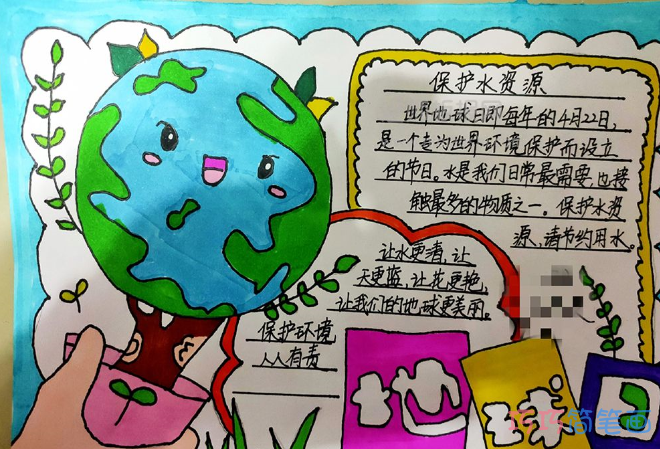 保护水资源
世界地球日即每年的4月22日,
是一个专为世界环境保护而设立
的节日。水是我们日常最需要,也接
触最多的物质之一。保护水资
源,请节约用水。
让水更清,让
天更蓝,让花更艳,
让我们的地球更美丽。
保护环境
人人有责
地球
简笔画